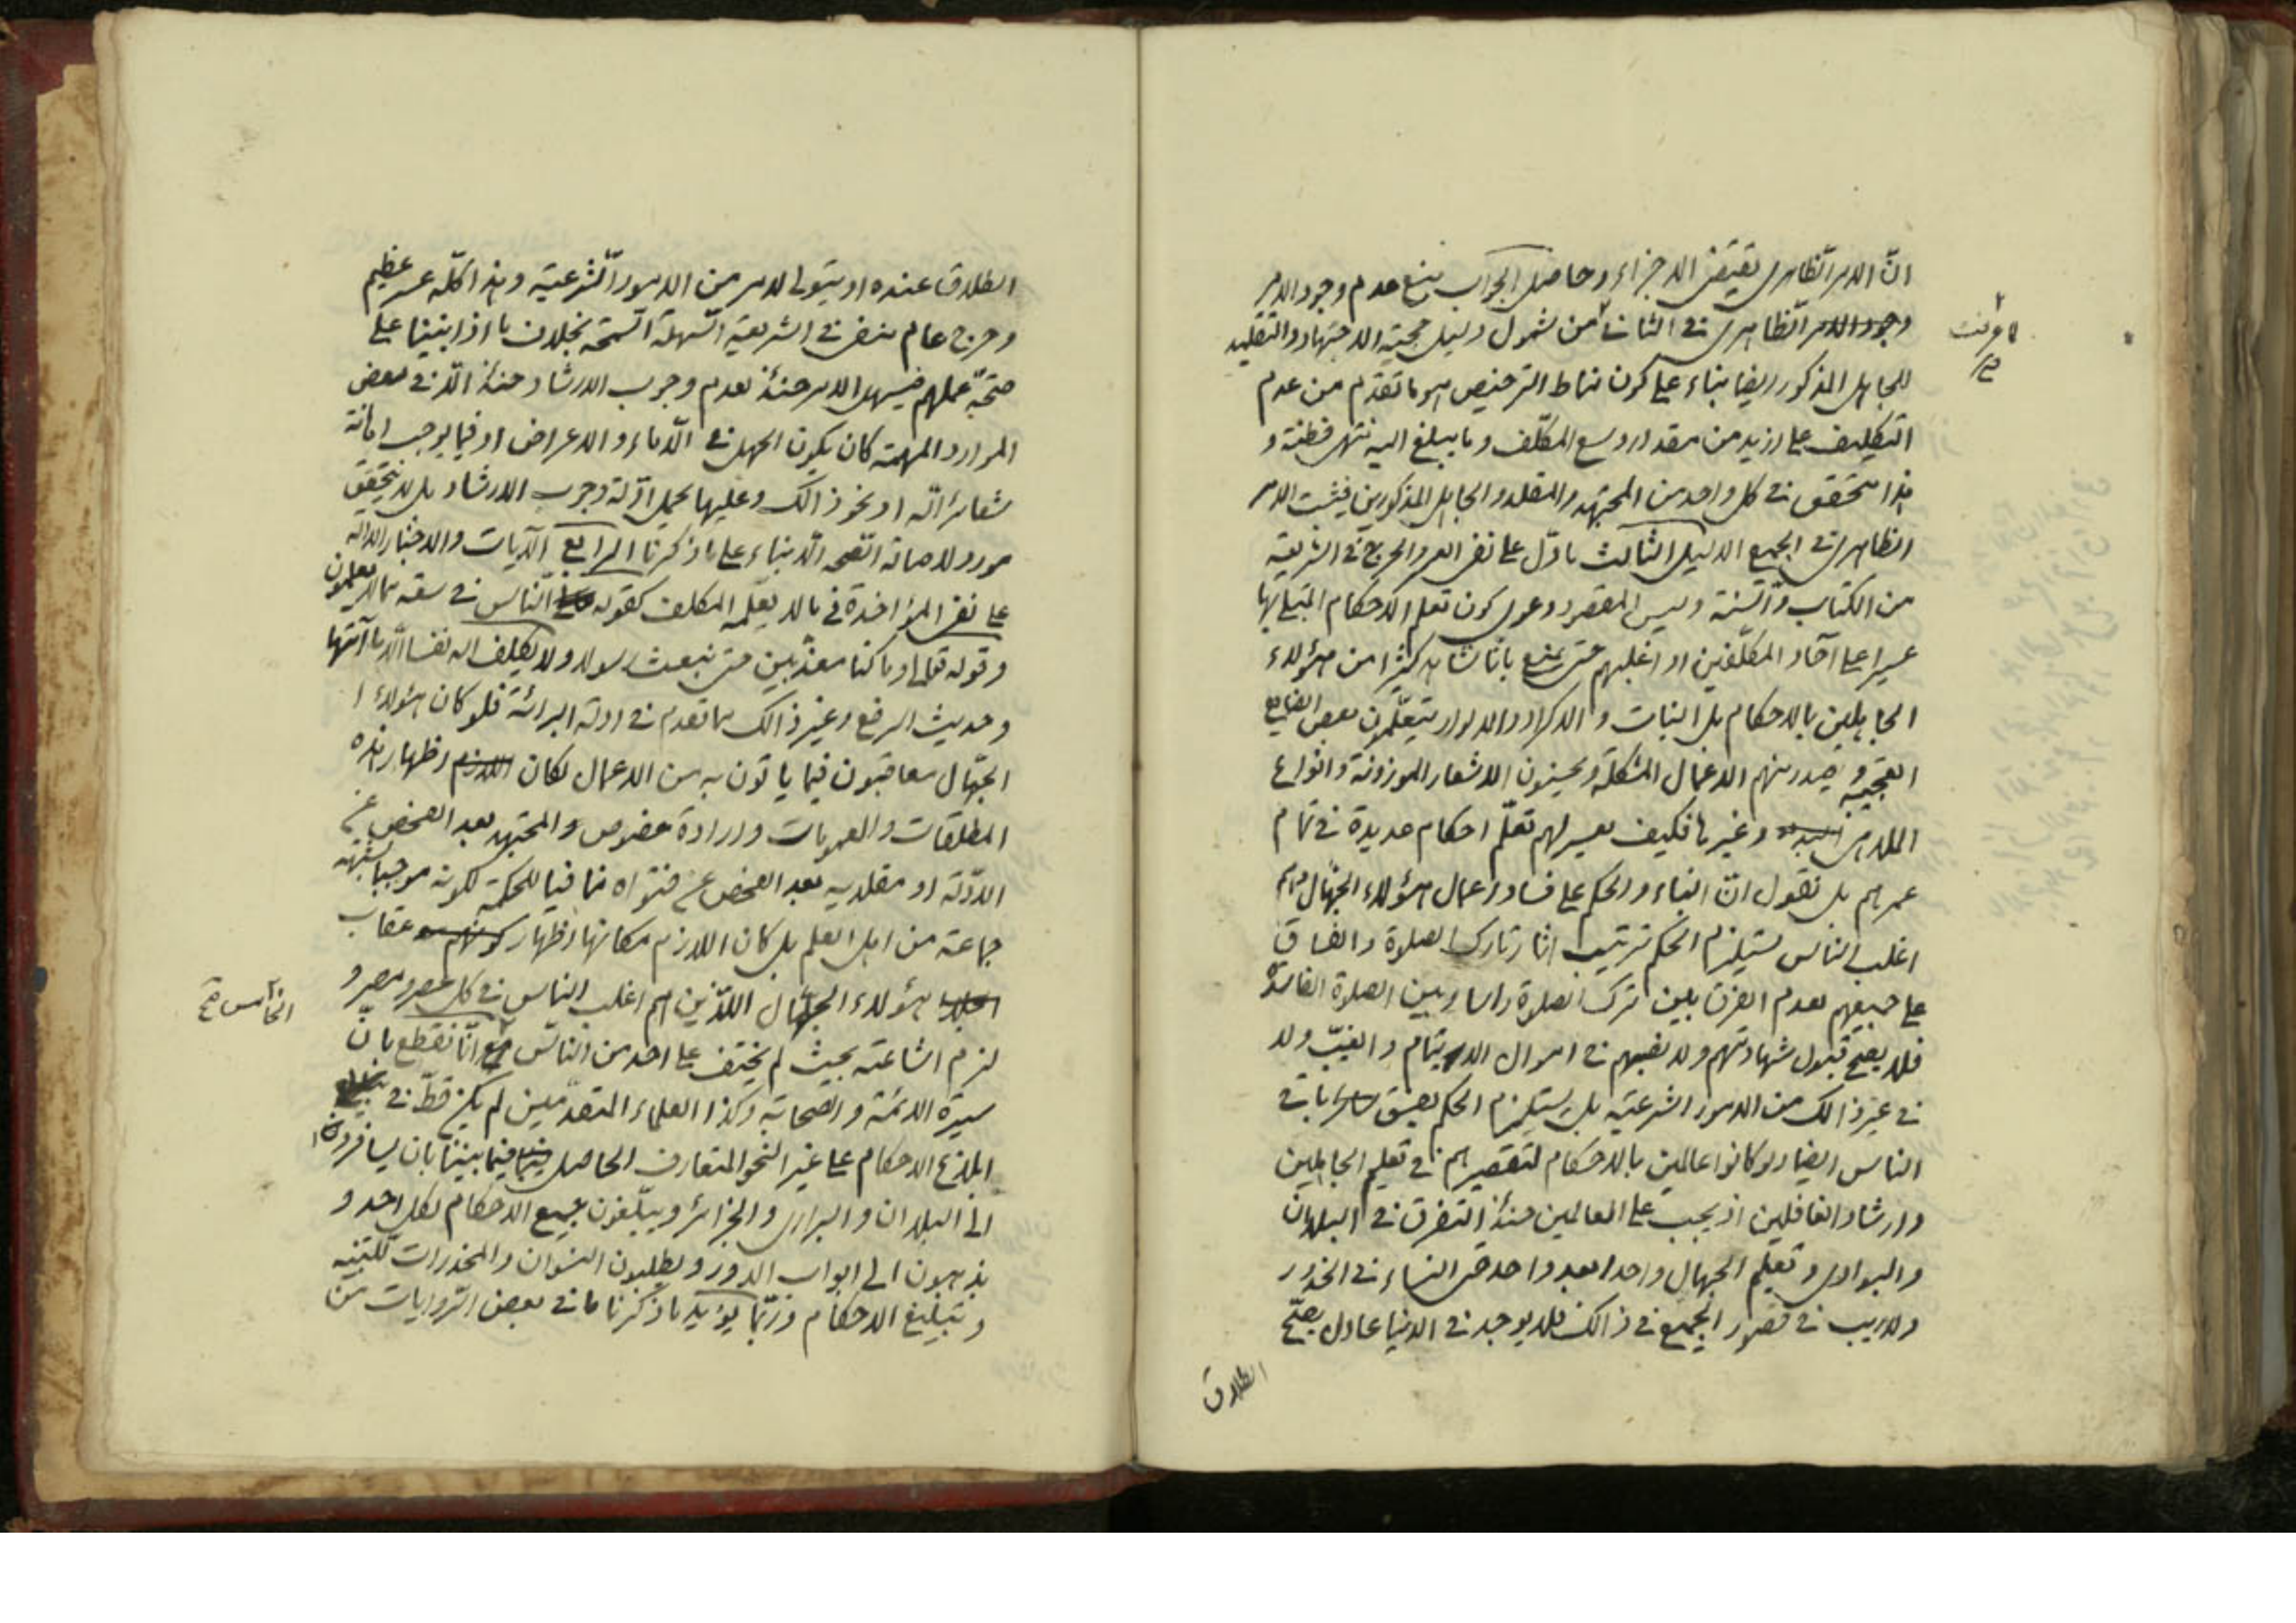 انّ الامر الظاهری یقتضی الاجزاء و حاصل الجواب منع عدم وجود الامر
وجود الامر الظاهری فی الثانی من شمول دلیل حجیة الاجتهاد و التقلید
لما عرفت
صح
للجاهل المذکور ایضا بناء علی کون مناط الترخیص هو ما تقدم من عدم
التکلیف علی ازید من مقدار وسع المکلّف و ما یبلغ الیه منتهی فطنته و
هذا متحقق فی کل واحد من المجتهد و المقلد و الجاهل المذکورین فیثبت الامر
الظاهری فی الجمیع الدلیل الثالث ما دلّ علی نفی العسر و الحرج فی الشریعة
من الکتاب و السّنة و لیس المقصود دعوی کون تعلم الاحکام المبتلی بها
عسیرا علی آحاد المکلّفین او اغلبهم حتی یمنع بانا نشاهد کثیرا من هؤلاء
الجاهلین بالاحکام بل البنات و الاکراد و الالوار یتعلّمون بعض الصنایع
العجیبة و یصدر منهم الاعمال المشکلة و یحسنون الاشعار الموزونة و انواع
الملاهی و غیرها فکیف یعسر لهم تعلّم احکام عدیدة فی تمام
عمرهم بل نقول انّ البناء و الحکم علی فساد اعمال هؤلاء الجهّال و هم
اغلب الناس یستلزم الحکم بترتیب آثار تارک الصلوة و الفساق
علی جمیعهم لعدم الفرق بین ترک الصلوة راسا و بین الصلوة الفاسدة
فلا یصح قبول شهادتهم و لا نصبهم فی اموال الایتام و الغیّب و لا
فی غیر ذالک من الامور الشرعیة بل یستلزم الحکم بفسق باقی
الناس ایضا و لو کانوا عالمین بالاحکام لتقصیرهم فی تعلیم الجاهلین
و ارشاد الغافلین اذ یجب علی العالمین حینئذ التفرق فی البلدان
و البوادی و تعلیم الجهال واحدا بعد واحد حتی النساء فی الخدور
و لاریب فی قصور الجمیع فی ذالک فلا یوجد فی الدنیا عادل یصحّ
الطلاق
الطلاق عنده او یتولی لامر من الامور الشرعیّة و هذا کلّه عسر عظیم
و حرج عام منفی فی الشریعة السّهلة السّمحة بخلاف ما اذا بنینا علی
صحّة عملهم فیسهل الامر حینئذ لعدم وجوب الارشاد حینئذ الّا فی بعض
الموارد المهمّة کان یکون الجهل فی الدّماء و الاعراض او فیما یوجب اهانة
شعائر الله او نحو ذالک و علیها یحمل ادّلة وجوب الارشاد بل لا یتحقق
مورد لاصالة الصحه الّا بناء علی ما ذکرنا الرابع الآیات و الاخبار الدالة
علی نفی المؤاخذة فی ما لا یعلمه المکلف کقوله النّاس فی سعة مالا یعلمون
و قوله تعالی و ما کنا معذّبین حتی نبعث رسولا و لا یکلف الله نفسا الّا ما آتیها
و حدیث الرفع و غیر ذالک مما تقدم فی ادلة البرائة فلو کان هؤلاء
الجهّال معاقبون فیما یاتون به من الاعمال لکان اظهار هذه
المطلقات و العمومات و ارادة خصوص المجتهد بعد الفحص عن
الادّلة او مقلدیه بعد الفحص عن فتواه منافیا للحکمة لکونه موجبا لشبهة
جماعة من اهل العلم بل کان اللازم مکانها اظهار عقاب
هؤلاء الجهّال اللّذین هم اغلب الناس فی کل عصر و مصر و
لزم اشاعته بحیث لم یختف علی احد من النّاس انّا نقطع بانّ
الخامس صح
سیرة الائمة و الصحابة و کذا العلماء المتقدمین لم یکن قطّ فی
ابلاغ الاحکام علی غیر النحو المتعارف الحاصل فیما بیننا بان یسافرون
الی البلدان و البراری و الجزائر و یبلّغون جمیع الاحکام لکل احد و
یذهبون الی ابواب الدور و یطلبون النسوان و المخدرات للتنبیه
و تبلیغ الاحکام و ربّما یؤید ما ذکرنا ما فی بعض الروایات من